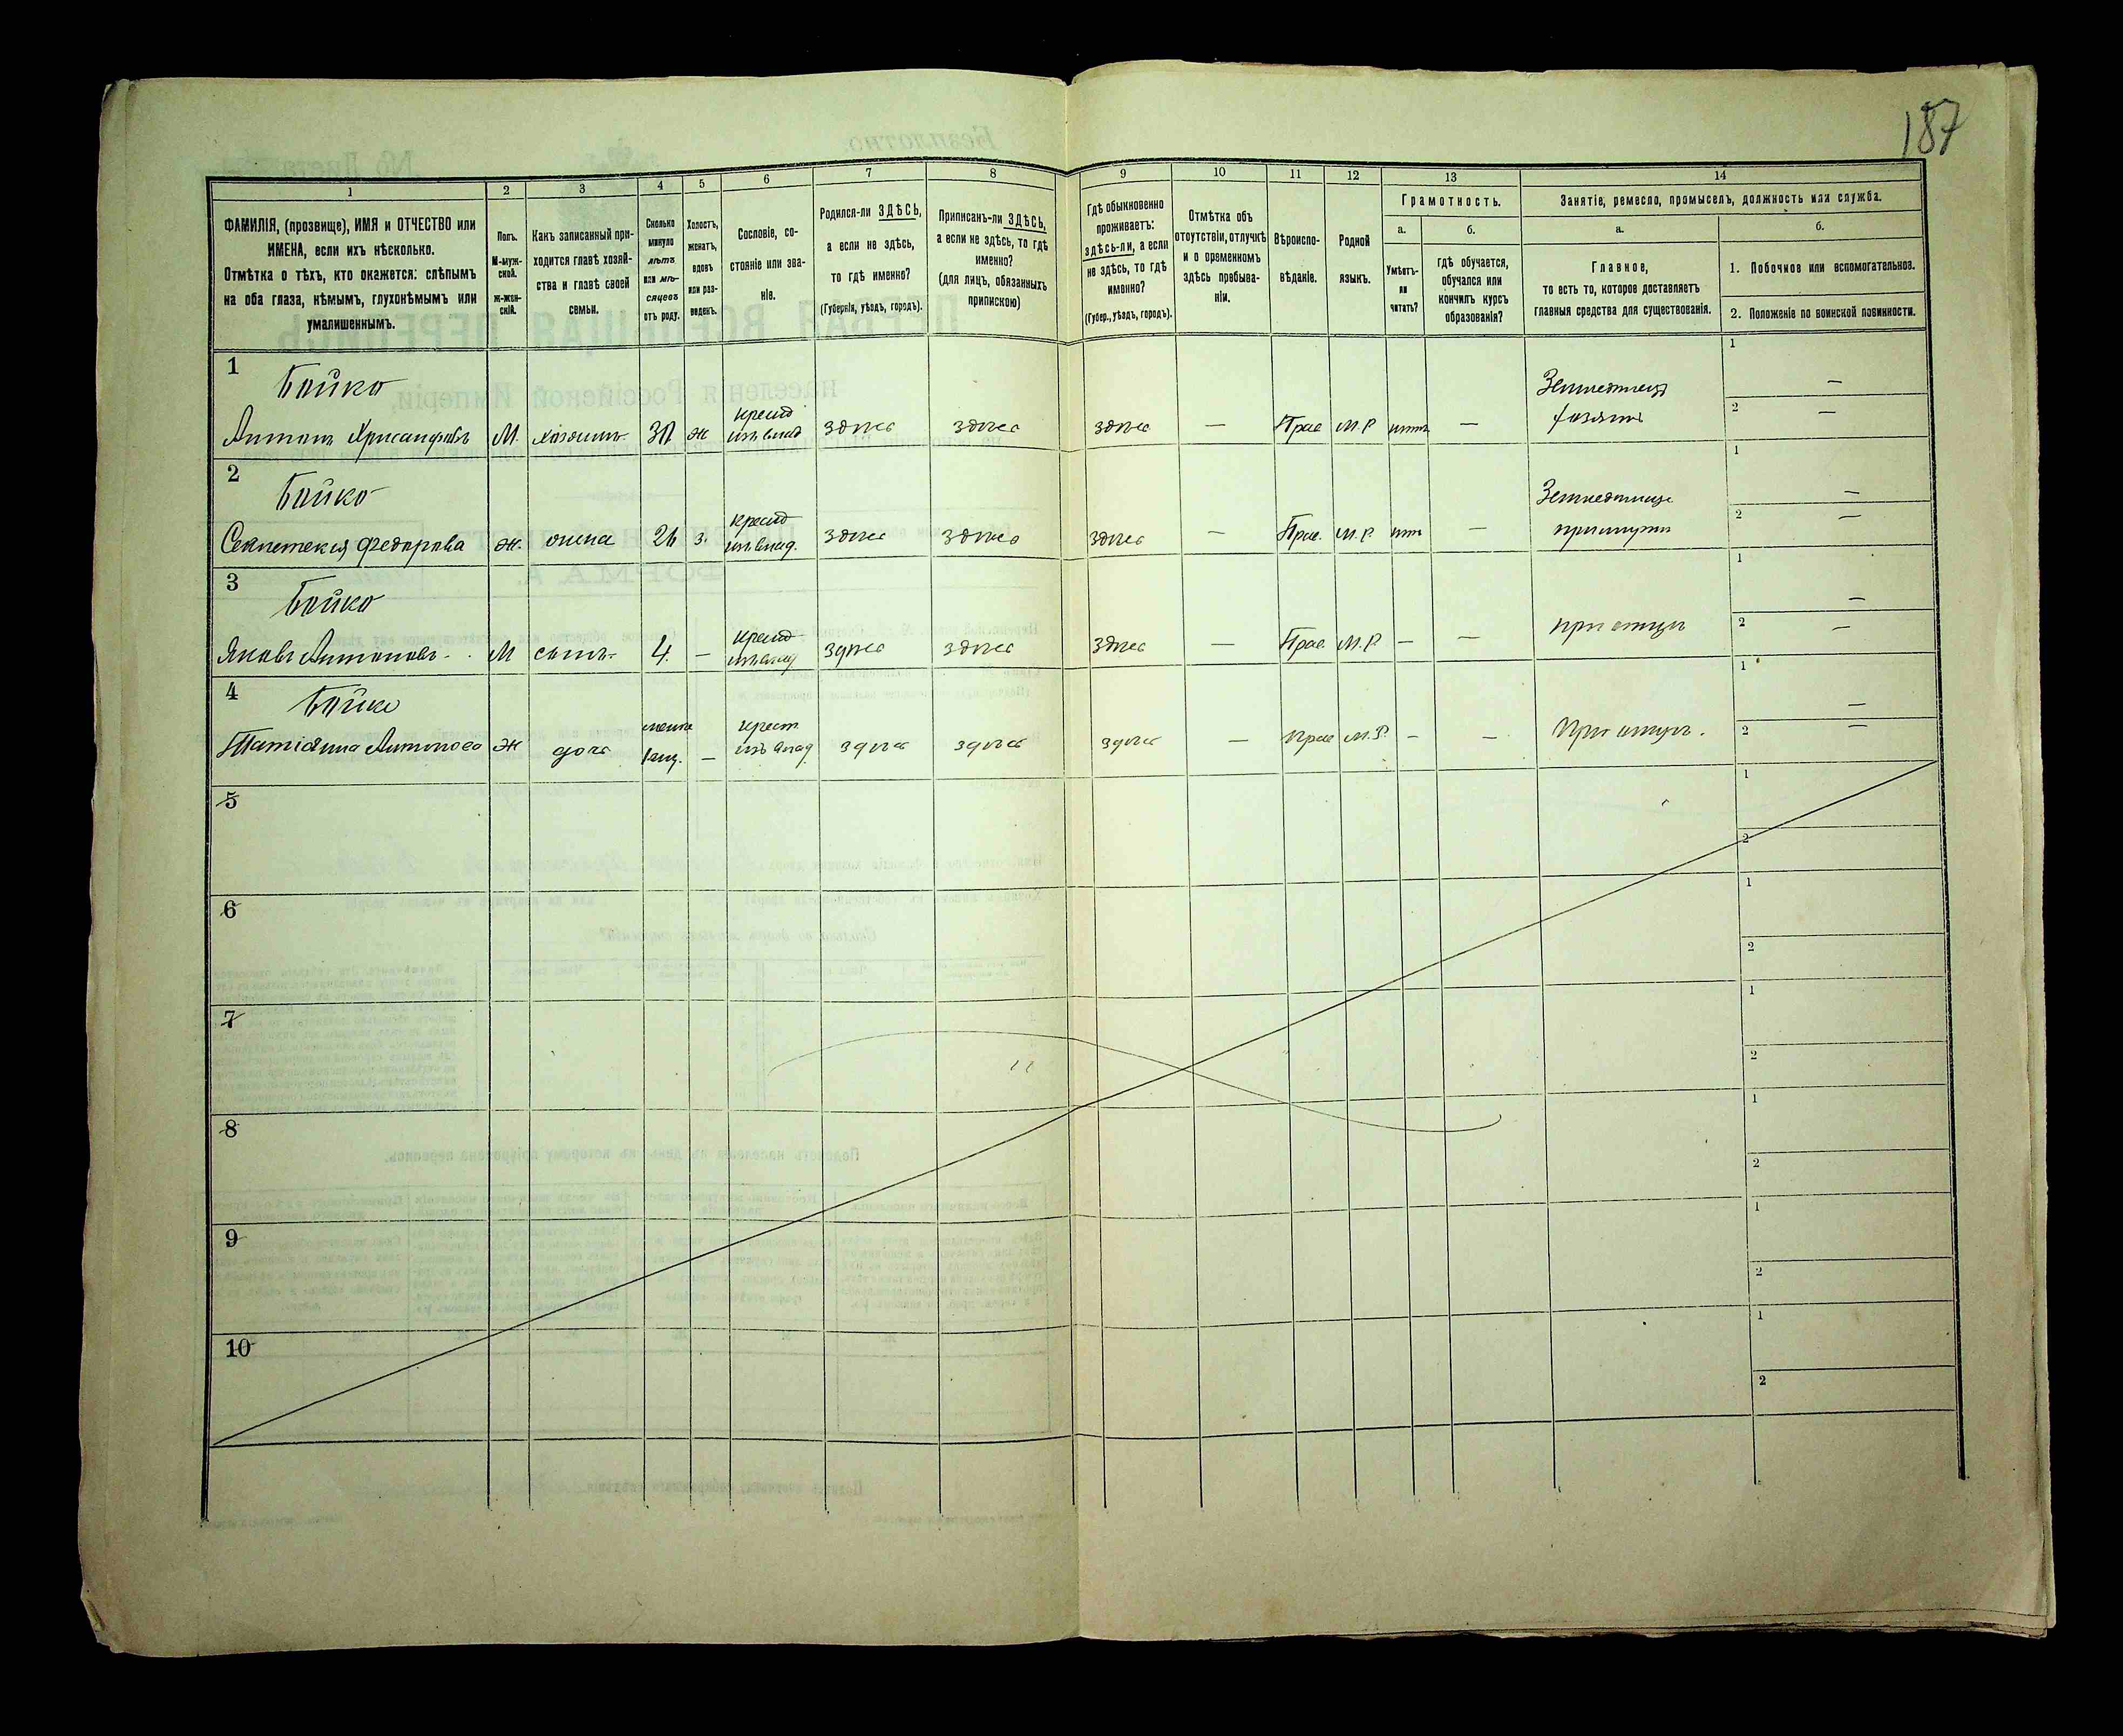 187
1
2
3
4
5
6
7
8
9
10
11
12
13
14
ФАМИЛІЯ, (прозвище), ИМЯ и ОТЧЕСТВО или
ИМЕНА, если ихъ нѣсколько.
Отмѣтка о тѣхъ, кто окажется: слѣпымъ
на оба глаза, нѣмымъ, глухонѣмымъ или
умалишеннымъ.
Полъ.
М-муж-
ской.
ж-жен-
скій.
Какъ записанный при-
ходится главѣ хозяй-
ства и главѣ своей
семьи.
Сколько
минуло
лѣтъ
или мѣ-
сяцевъ
отъ роду.
Холостъ,
женатъ,
вдовъ
или раз-
веденъ.
Сословіе, со-
стояніе или зва-
ніе.
Родился-ли ЗДѢСЬ,
а если не здѣсь,
то гдѣ именно?
(Губернія, уѣздъ, городъ).
Приписанъ-ли ЗДѢСЬ,
а если не здѣсь, то гдѣ
именно?
(для лицъ, обязанныхъ
припискою)
Гдѣ обыкновенно
проживаетъ:
здѣсь-ли, а если
не здѣсь, то гдѣ
именно?
(Губер., уѣздъ, городъ).
Отмѣтка объ
отсутствіи, отлучкѣ
и о временномъ
здѣсь пребыва-
ніи.
Вѣроиспо-
вѣданіе.
Родной
языкъ.
Грамотность.
а.
Умѣетъ-
ли
читать?
б.
гдѣ обучается,
обучался или
кончилъ курсъ
образованія?
Занятіе, ремесло, промыселъ, должность или служба.
а.
Главное,
то есть то, которое доставляетъ
главныя средства для существованія.
б.
1. Побочное или вспомогательное.
2. Положеніе по воинской повинности.
1
Бойко
Антонъ Хрисанфовъ М. хозяинъ 30 ж крест изъ влад здѣсь здѣсь здѣсь — Прав М.Р нѣтъ — Земледѣлецъ хозяинъ
1 —
2 —
2
Бойко
Федорова ж. жена 26 з. крест изъ влад. здѣсь здѣсь здѣсь — Прав. М.Р нѣтъ — при мужѣ
1 —
2 —
3
Бойко
Яковъ Антоновъ М сынъ 4. — крест изъ влад здѣсь здѣсь здѣсь — Прав. М.Р — — при отцѣ
1 —
2 —
4
Бойко
Татіянна Антонова ж дочь — крест изъ влад здѣсь здѣсь здѣсь — Прав М.Р. — — При отцѣ.
1 —
2 —
5
1
2
6
1
2
7
1
2
8
1
2
9
1
2
10
1
2